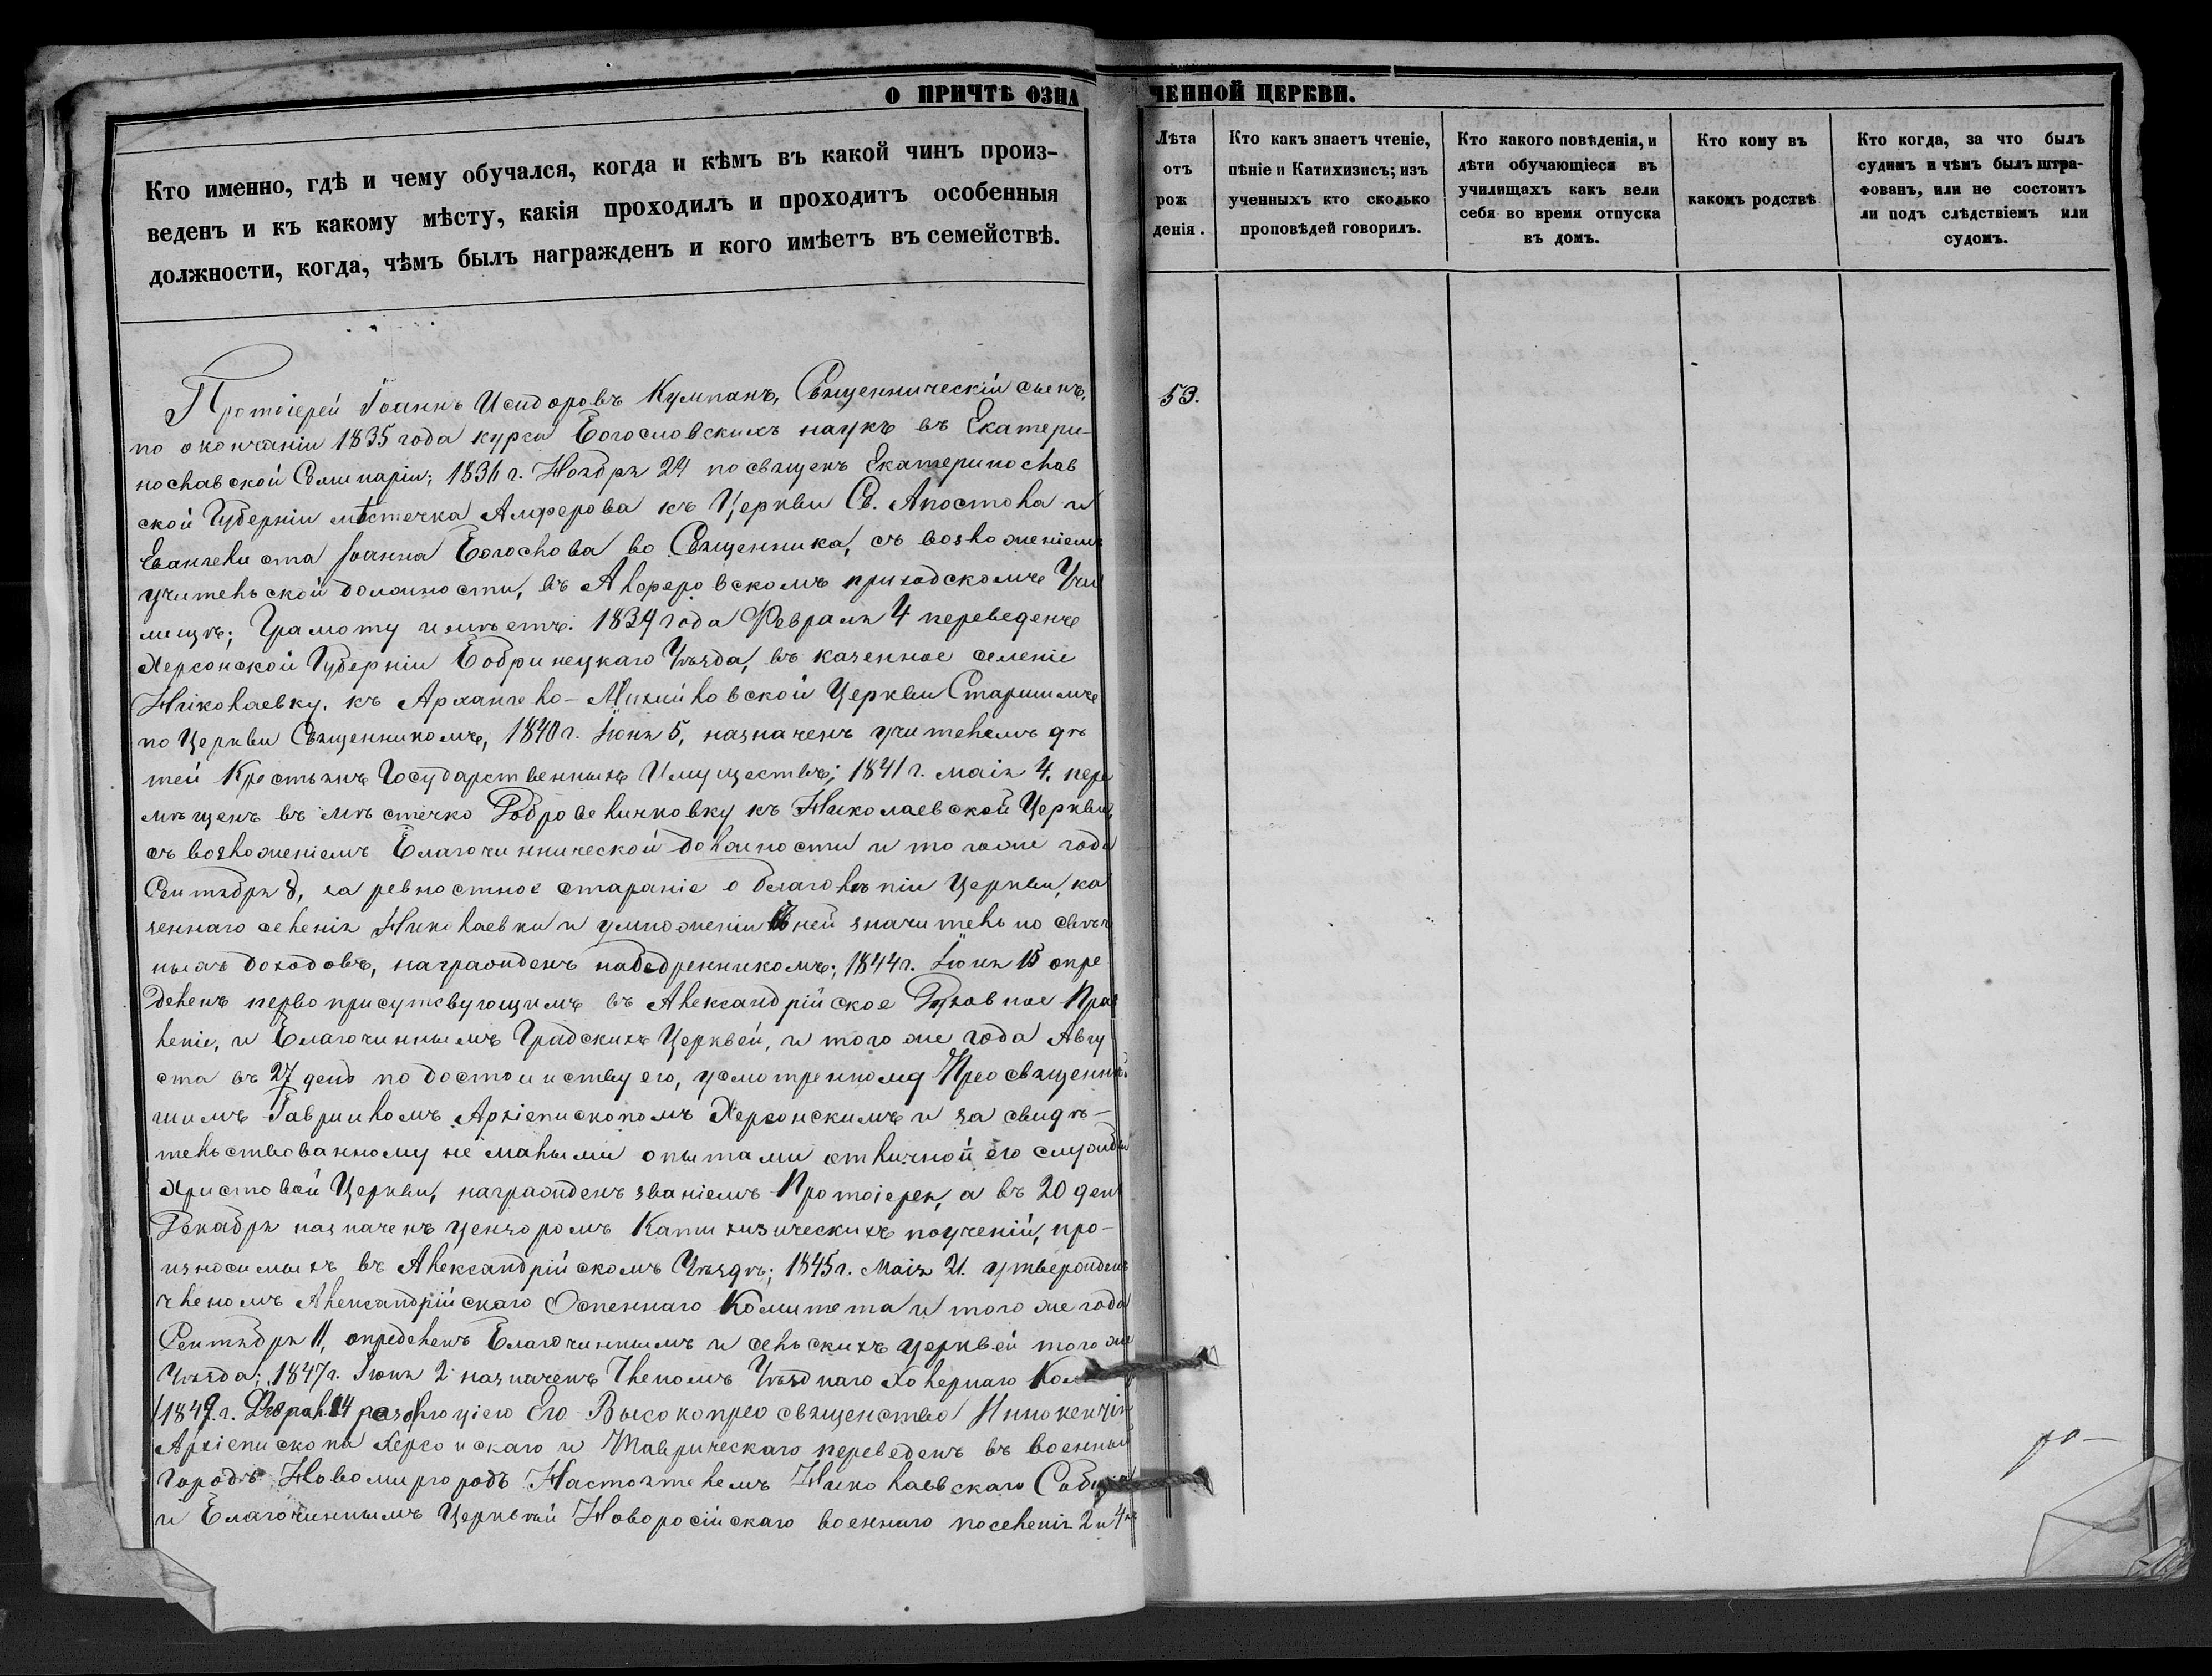 О ПРИЧТѢ ОЗНАЧЕННОЙ ЦЕРКВИ.
Кто именно, гдѣ и чему обучался, когда и кѣмъ въ какой чинъ произ-
веденъ и къ какому мѣсту, какія проходилъ и проходитъ особенныя
должности, когда, чѣмъ былъ награжденъ и кого имѣетъ въ семействѣ.
Лѣта
отъ
рож
денія.
Кто какъ знаетъ чтеніе,
пѣніе и Катихизисъ; изъ
ученныхъ кто сколько
проповѣдей говорилъ.
Кто какого повѣденія, и
дѣти обучающіеся въ
училищахъ какъ вели
себя во время отпуска
въ домъ.
Кто кому въ
какомъ родствѣ
Кто когда, за что былъ
судимъ и чѣмъ былъ штра-
фованъ, или не состоитъ
ли подъ слѣдствіемъ или
судомъ.
Протоіерей Іоаннъ Исидоровъ Кумпанъ, Священническій сынъ,
по окончаніи 1835 года курса Богословскихъ наукъ въ Екатери-
нославской Семинаріи; 1836 г. Ноября 24 посвященъ Екатеринослав
ской Губерніи мѣстечка Алферова къ Церкви Св. Апостола и
Евангелиста Іоанна Богослова во Священника, съ возложеніемъ
учительской должности, въ Алферовскомъ приходскомъ Учи
лищѣ; Грамоту имѣетъ. 1839 года Февраля 4 переведенъ
Херсонской Губерніи Бобринецкаго Уѣзда, въ казенное селеніе
Николаевку. къ Архангело-Михайловской Церкви Старшимъ
по Церкви Священникомъ, 1840 г. Іюня 5, назначенъ учителемъ дѣ
тей Крестьянъ Государственныхъ Имуществъ; 1841 г. маія 4. пере
мѣщенъ въ мѣстечко Добровеличковку къ Николаевской Церкви,
съ возложеніемъ Благочиннической должности и того же года
Сентября 8, за ревностное стараніе о благолѣпіи Церкви, ка
зеннаго селенія Николаевки и умноженіи въ ней значительно свѣч
ныхъ доходовъ, награжденъ набедренникомъ; 1844 г. Іюня 15 опре
деленъ первоприсутсвующимъ въ Александрійское Духовное Прав
леніе, и Благочиннымъ Градскихъ Церквей, и того же года Авгу
ста въ 27 день по достоинству его, усмотренному Преосвященнѣй
шимъ Гавриломъ Архіепископомъ Херсонскимъ и засвидѣ-
тельствованному не малыми опытами отличной его службы
Христовой Церкви, награжденъ званіемъ Протоіерея, а въ 20 день
Декабря назначенъ цензоромъ Катихизическихъ поученій, про-
износимыхъ въ Александрійскомъ Уѣздѣ; 1845 г. Маія 21. утвержденъ
членомъ Александрійскаго Оспеннаго Комитета и того же года
Сентября 11, определенъ Благочиннымъ и сельскихъ церквей того же
Уѣзда; 1847 г. Іюня 2 назначенъ Членомъ Уѣзднаго Холернаго
1849. г. Феврал. 14 резолюціею Его Высокопреосвященства Инокентія
Архіепископа Херсонскаго и Таврическаго переведенъ въ военный
Городъ Новомиргородъ Настоятелемъ Николаевскаго Собора
и Благочиннымъ Церквей Новоросійскаго военнаго поселенія 2 и 4
53.